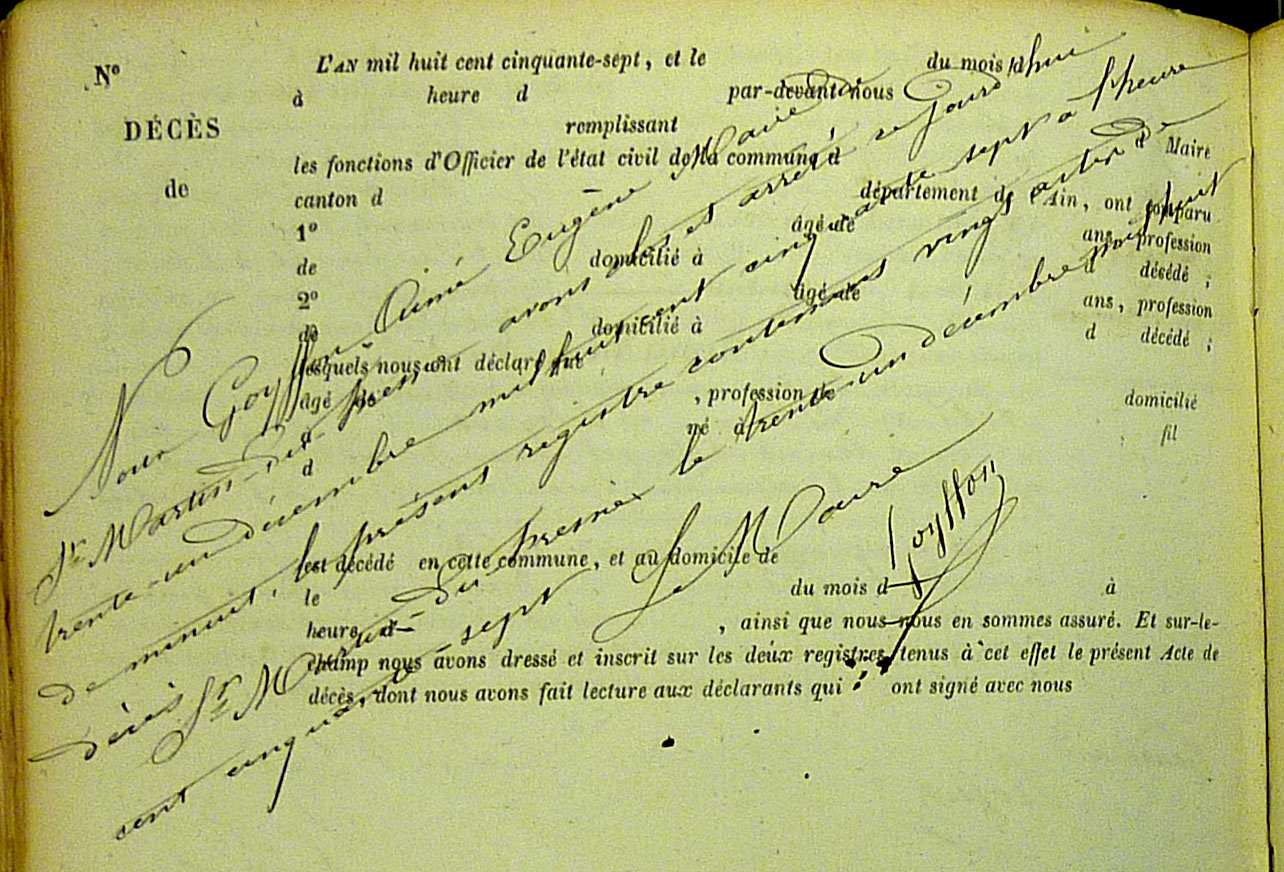 N° L'AN mil huit cent cinquante-sept, et le du mois d
à heure d par-devant nous
DÉCÈS remplissant
les fonctions d'Officier de l'état civil de la commune d
de canton d département de l'Ain, ont comparu
d Maire
1° âgé de ans, profession
de domicilié à d décédé ;
2° âgé de ans, profession
de domicilié à d décédé ;
lesquels nous ont déclaré que
âgé de , profession de domicilié
à né à fil
d
est décédé en cette commune, et au domicile de
le du mois d à
heure d , ainsi que nous nous en sommes assuré. Et sur-le-
champ nous avons dressé et inscrit sur les deux registres tenus à cet effet le présent Acte de
décès, dont nous avons fait lecture aux déclarants qui ont signé avec nous
Nous Goyffon Aimé Eugène Maire de
St Martin du fresne avons clos et arrêté ce jourd'hui
trente-un décembre mil huit cent cinquante sept à l'heure
de minuit, le présent registre contenant vingt actes de
décès St Martin-du fresne le trente un décembre mil huit
cent cinquante-sept Le Maire
Goyffon